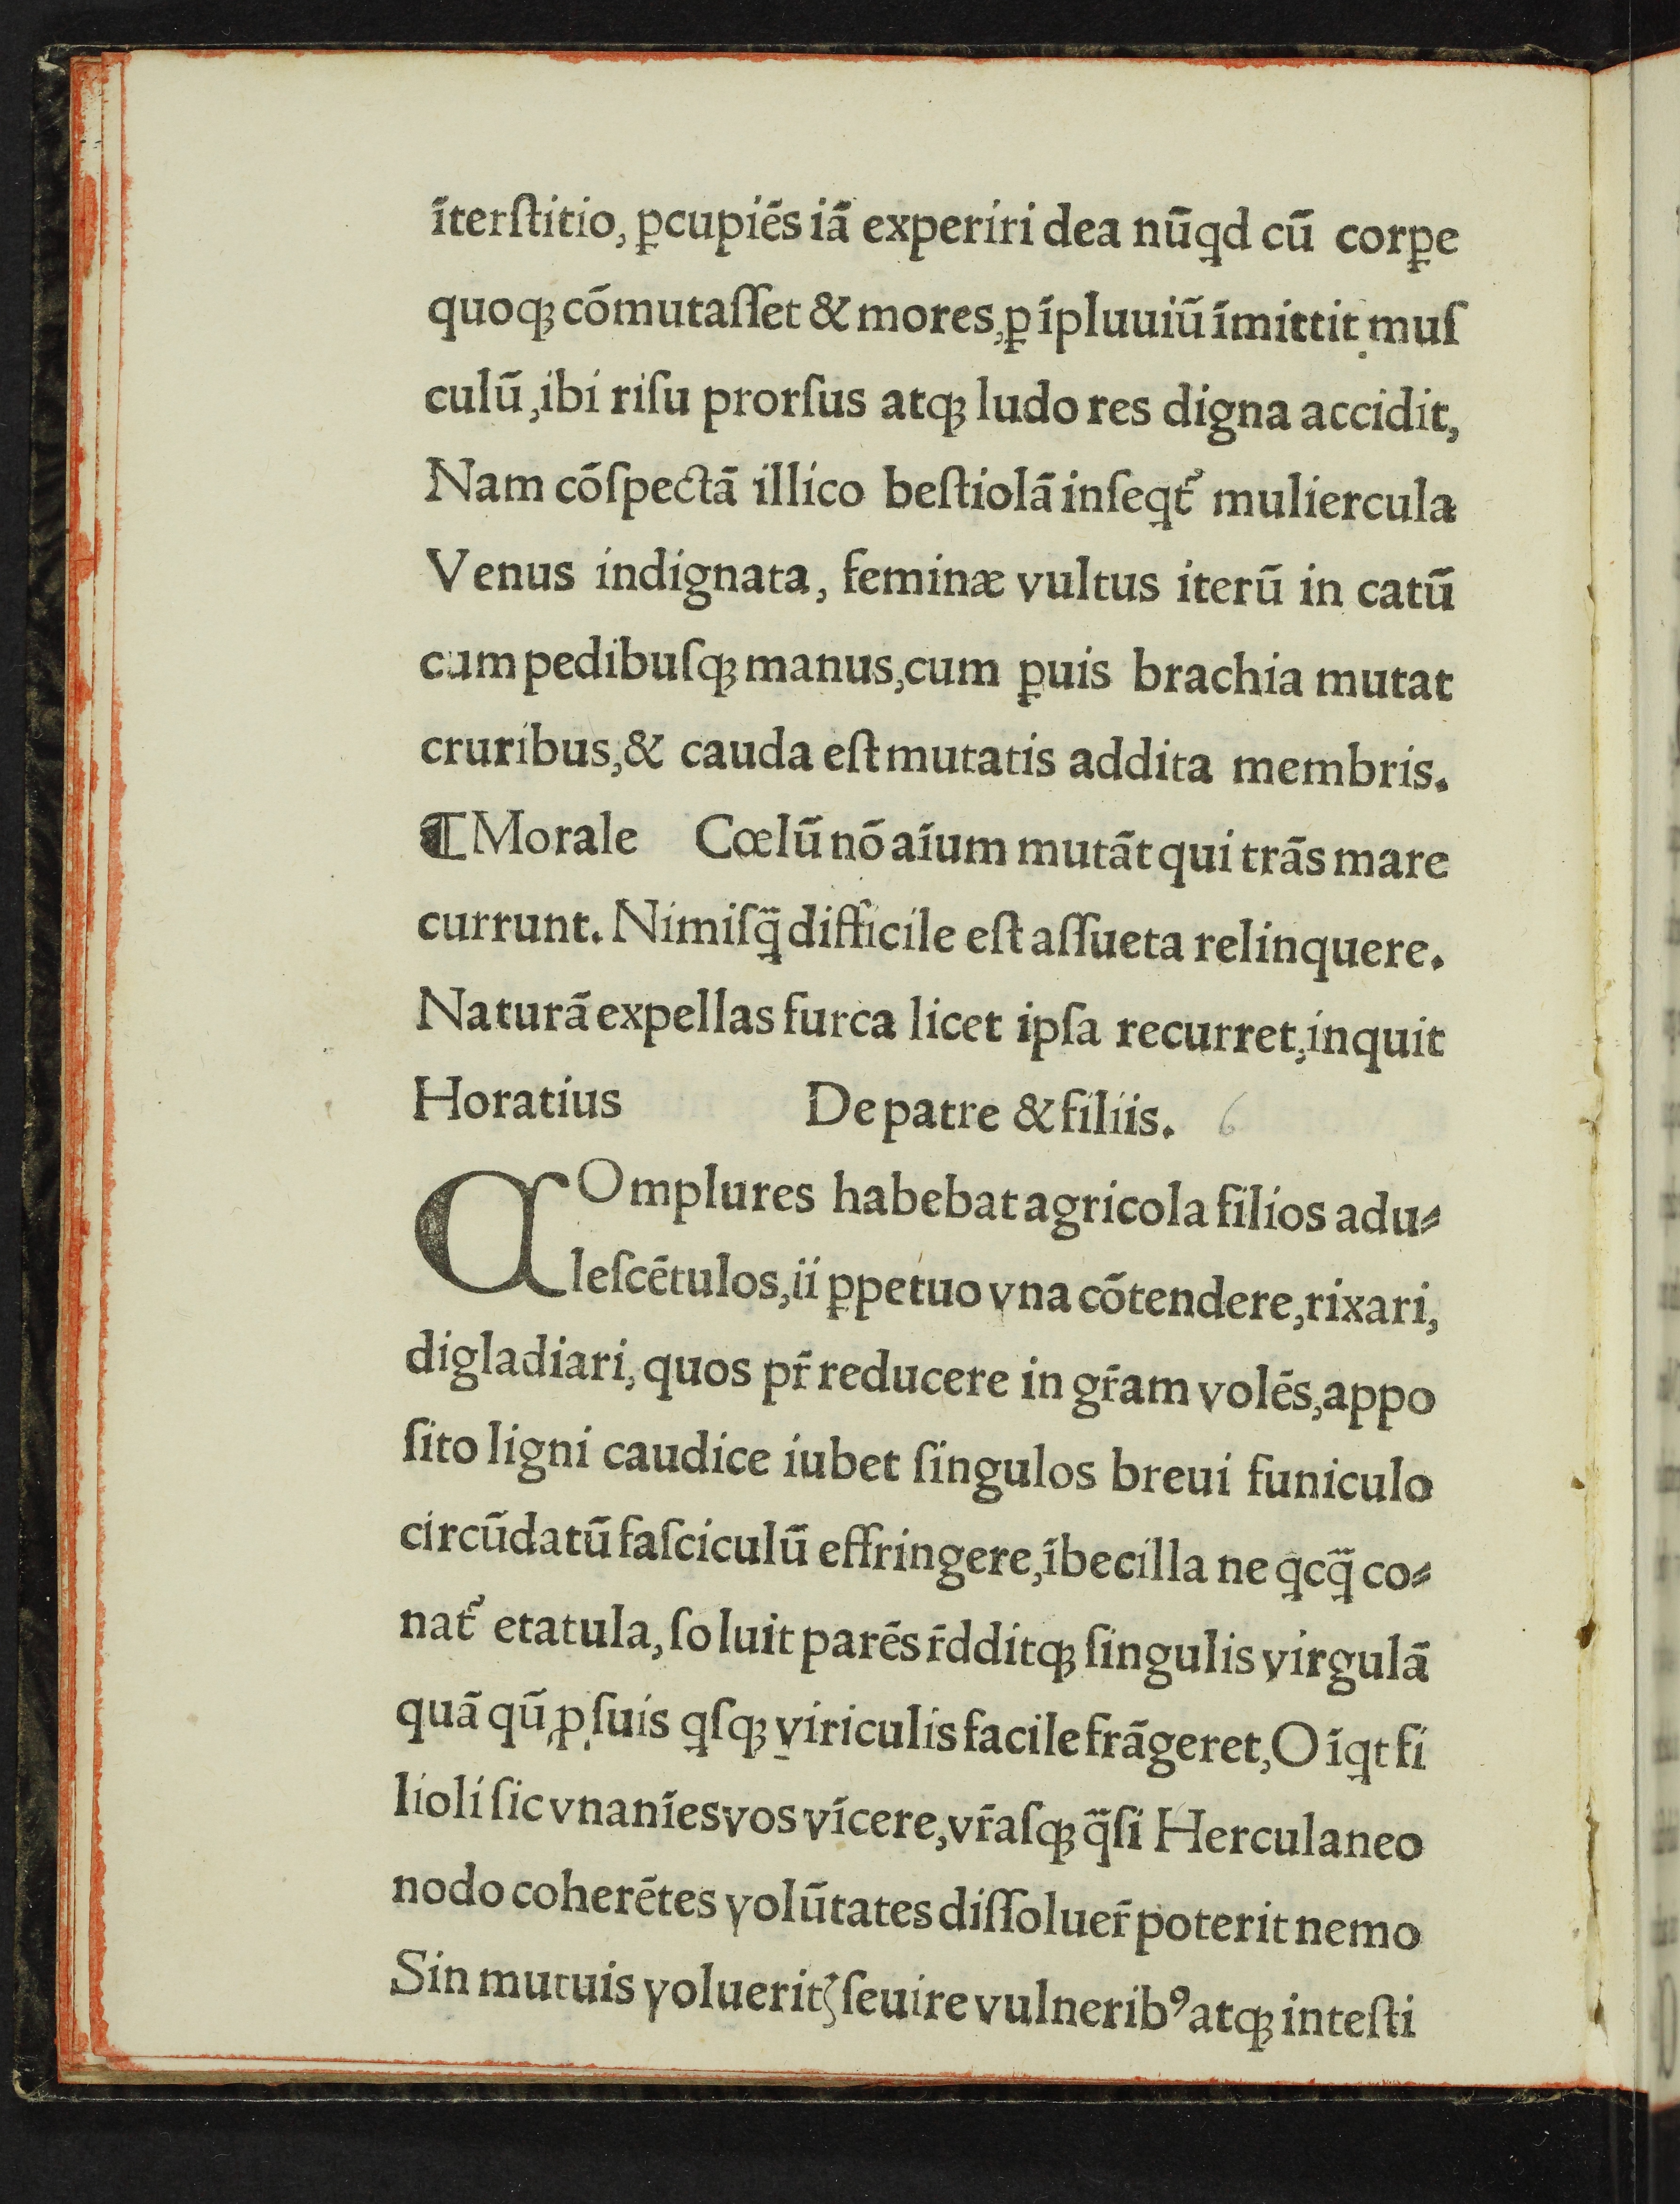 ĩterſtitio, ꝑcupiẽs iã experiri dea nũqd cũ corꝑe
quoqꝫ cõmutaſſet & mores, ꝑ ĩpluuiũ ĩmittit muſ
culũ, ibi riſu prorſus atqꝫ ludo res digna accidit,
Nam cõſpectã illico beſtiolã inſeqt᷑ muliercula
Venus indignata, feminæ vultus iterũ in catũ
cum pedibuſqꝫ manus, cum ꝑuis brachia mutat
cruribus, & cauda eſt mutatis addita membris.
¶ Morale Cœlũ nõ aĩum mutãt qui trãs mare
currunt. Nimiſq̃ difficile eſt aſſueta relinquere.
Naturã expellas furca licet ipſa recurret, inquit
Horatius De patre & filiis. 6
COmplures habebat agricola filios adu⸗
leſcẽtulos, ii ꝑpetuo vna cõtendere, rixari,
digladiari, quos pr̃ reducere in gr̃am volẽs, appo
ſito ligni caudice iubet ſingulos breui funiculo
circũdatũ faſciculũ effringere, ĩbecilla ne qͥcq̃ co⸗
nat᷑ etatula, ſoluit parẽs r̃dditqꝫ ſingulis virgulã
quã qũ ꝓ ſuis qſqꝫ viriculis facile frãgeret, O ĩqt fi
lioli ſic vnanĩes vos vĩcere, vr̃aſqꝫ q̃ſi Herculaneo
nodo coherẽtes volũtates diſſoluer̃ poterit nemo
Sin mutuis voluerit᷑ ſeuire vulneribꝰ atqꝫ inteſti